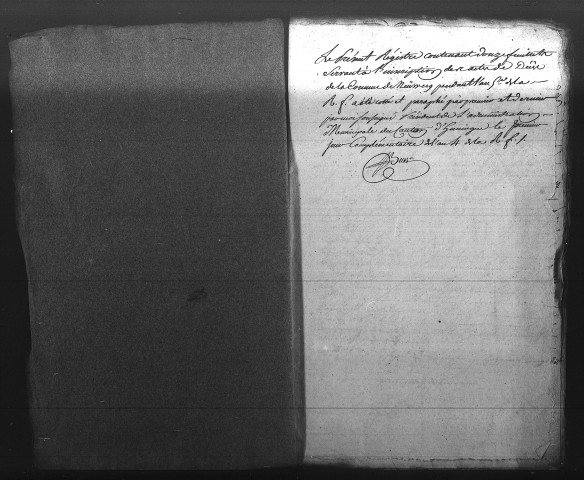 Le présent Régistre contenant douze feuillets
Servant à l'inscription des actes de Décès
de la Commune de Neuweg pendant l'an 5.e de la
R. f. a été coté et paraphé par premier et dernier
par moi soussigné Président de l'administration
Municipale du Canton d'Huningue le premier
jour Complémentaire de l'an 4. de la R. f.